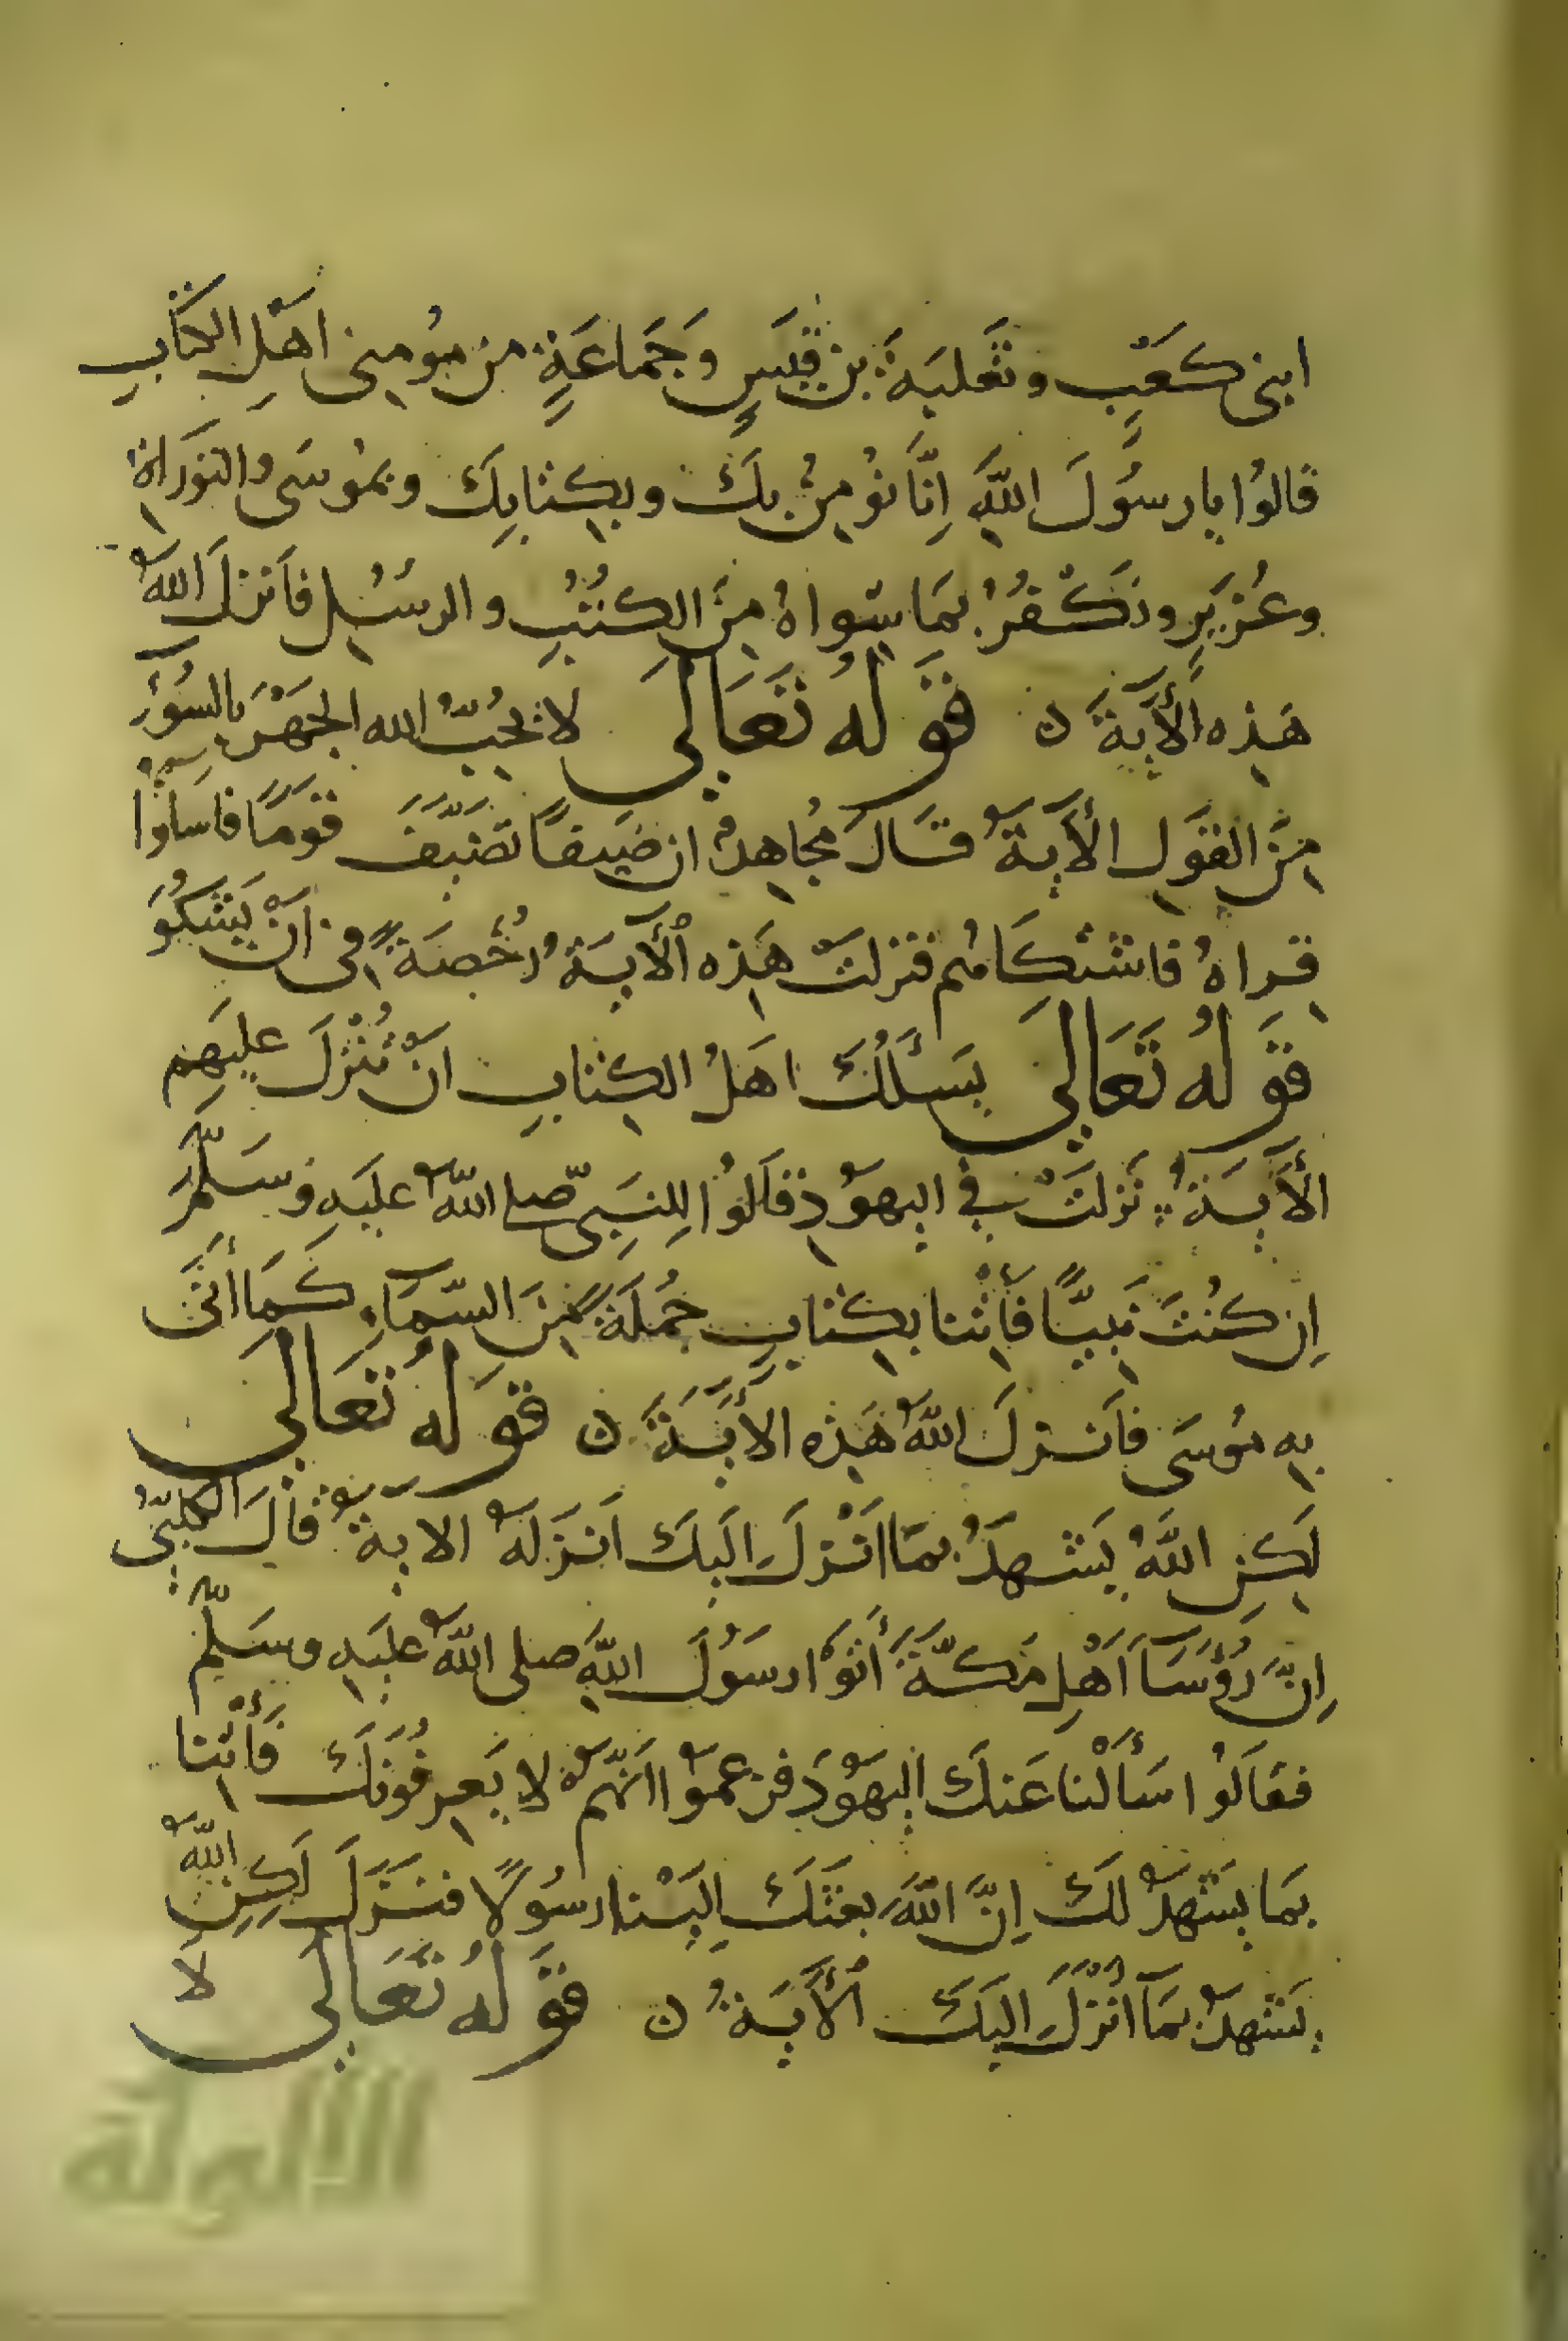 ابنى كَعْبٍ وثَعْلبَةَ بن قَيْسٍ وَجَمَاعَةٍ من مُومِنى اهْلِ الكتَابِ
قالوُا يا رسوُلَ اللهِ اِنَّا نُومِنُ بِكَ وبِكِتابِكَ وبمُوسَى والتورَاةِ
وعُزيرٍ ونَكْفُرُ بمَا سِواهُ مِنَ الكُتُبِ والرسُلِ فأنزلَ اللهُ
هَذِه الأيَةَ ن قَوْلُهُ تَعَالَى لا يحُبُّ الله الجَهْرَ بالسُوءِ
مِنَ القَوْلِ الأيَةَ قَالَ مُجاهِدٌ ان ضَيفًا تَضَيَّفَ قومًا فاساوُا
قِراهُ فاشتكَاهُم فنزلتْ هَذِه الأيَةُ رُخْصَةً فى انْ يَشْكُو
قَوْلُهُ تَعَالَى يَسْئَلُكَ اهْلُ الكِتابِ انْ تُنْزِلَ عليهِم
الأيَةُ نَزلَتْ فِى اليهوُدِ قَالوُا لِلنبِىّ صلى اللهُ عليَهِ وَسَلَّمَ
اِن كنُتَ نَبِيًّا فَأتِنا بكِتابٍ جُمْلَةً مِنَ السَّمَاءِ كَمَا أتَى
بِه مُوسَى فأنزلَ اللهُ هَذِه الأيَةَ ن قَوْلُهُ تَعَالَى
لَكِنِ اللهُ يَشهَدُ بمَا انْزلَ اليكَ انَزلَهُ الايةُ قَالَ الكلبِىُّ
اِنَّ رُؤسَا اهْلِ مَكَّةَ أَتَوْا رسَوُلَ اللهِ صلى اللهُ عليَهِ وسَلَّم
فقَالوُا سَأَلْنا عَنكَ اليهوُدَ فزعموُا انَّهُمْ لا يَعرِفُونَكَ فَأتِنا
بمَا يشَهَدُ لكَ اِنَّ اللهَ بعثَكَ اِليْنا رسوُلًا فنَزَلَ لَكِنِ اللهُ
يَشهَدُ بمَا أنْزَلَ اليكَ الأيَةُ ن قَوْلُهُ تَعَالَى لا
الألوكة